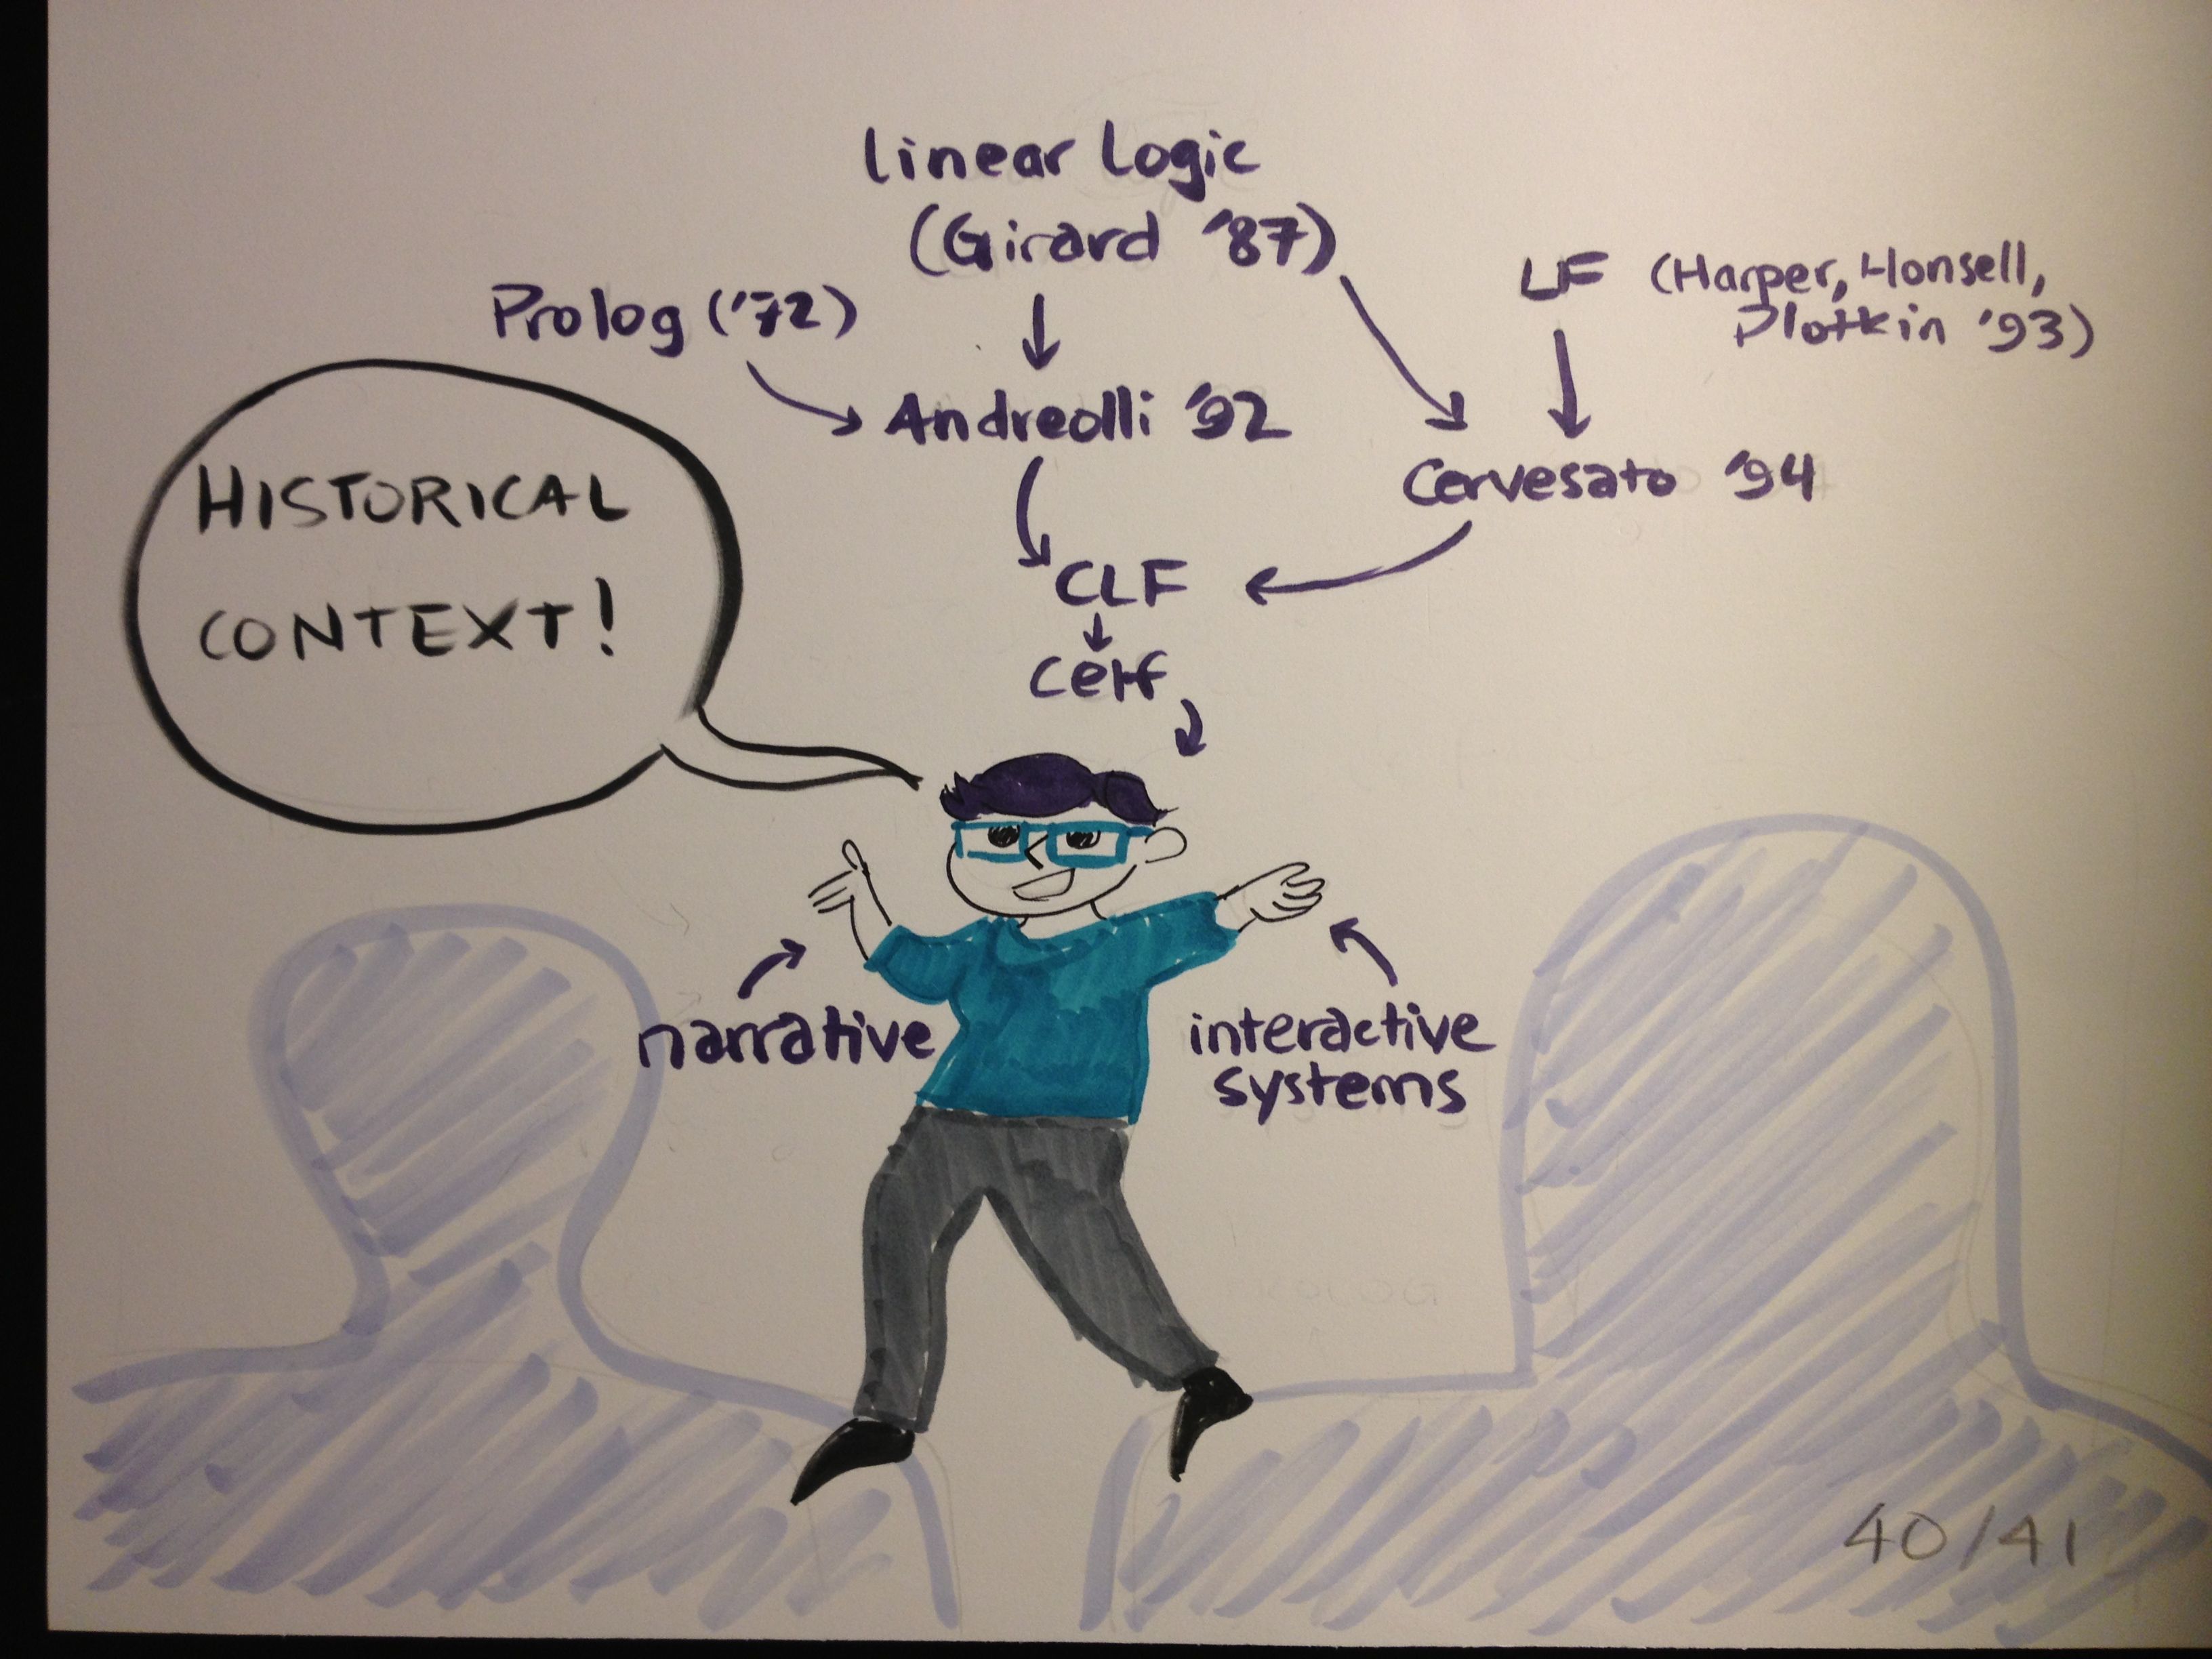 linear logic
(Girard '87)
Prolog ('72)
LF (Harper, Honsell,
Plotkin '93)
Andreolli '92
Cervesato '94
HISTORICAL
CONTEXT!
CLF
Celf
narrative
interactive
systems
40/41